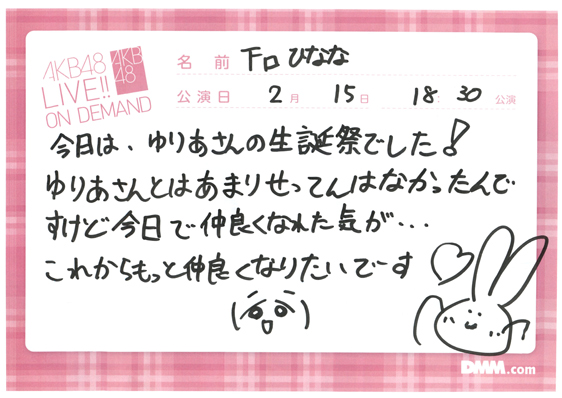 AKB48
LIVE!!
ON DEMAND
AKB
48
名前 下口ひなな
公演日 2月 15日 18:30 公演
今日は、ゆりあさんの生誕祭でした!
ゆりあさんとはあまりせってんはなかったんで
すけど今日で仲良くなれた気が・・・
これからもっと仲良くなりたいでーす
DMM.com